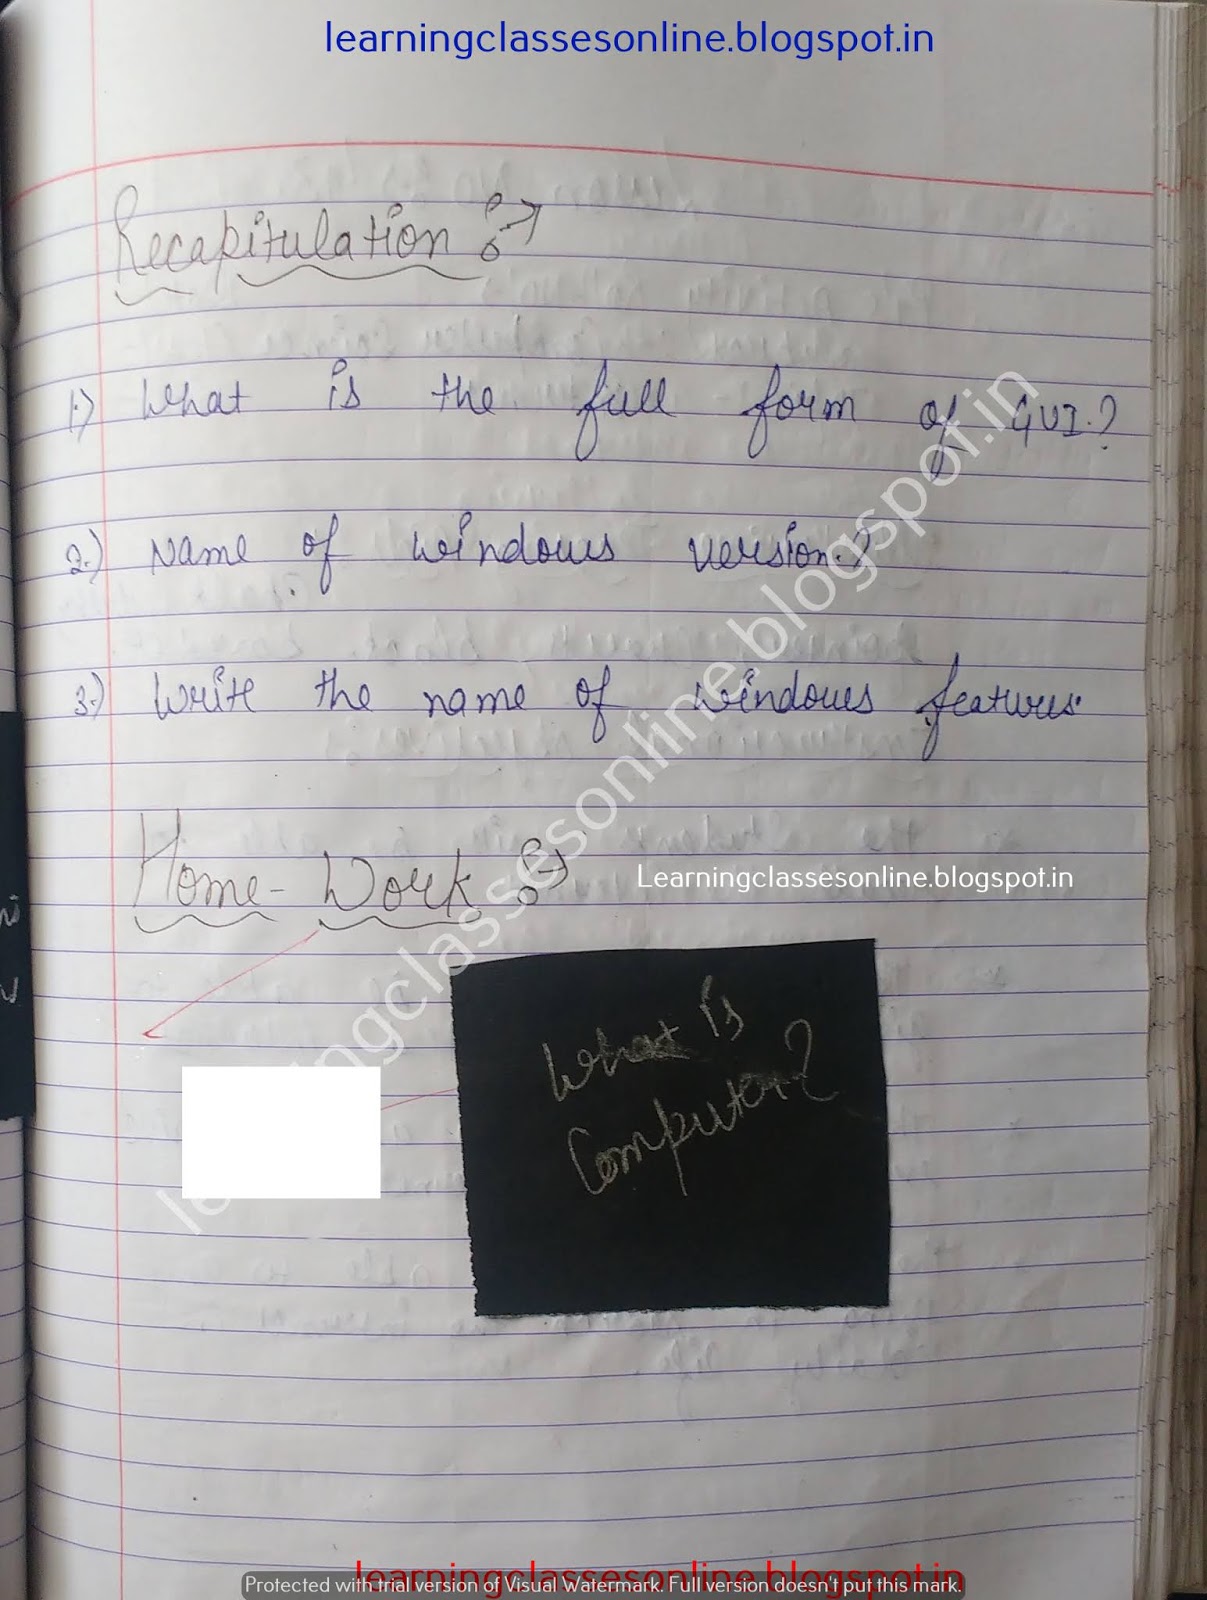 learningclassesonline.blogspot.in
Recapitulation :→
1.) What is the full form of GUI.?
2.) Name of windows version.?
3.) Write the name of windows features.
Home-Work :→
Learningclassesonline.blogspot.in
What is
Computer?
learningclassesonline.blogspot.in
learningclassesonline.blogspot.in
Protected with trial version of Visual Watermark. Full version doesn't put this mark.